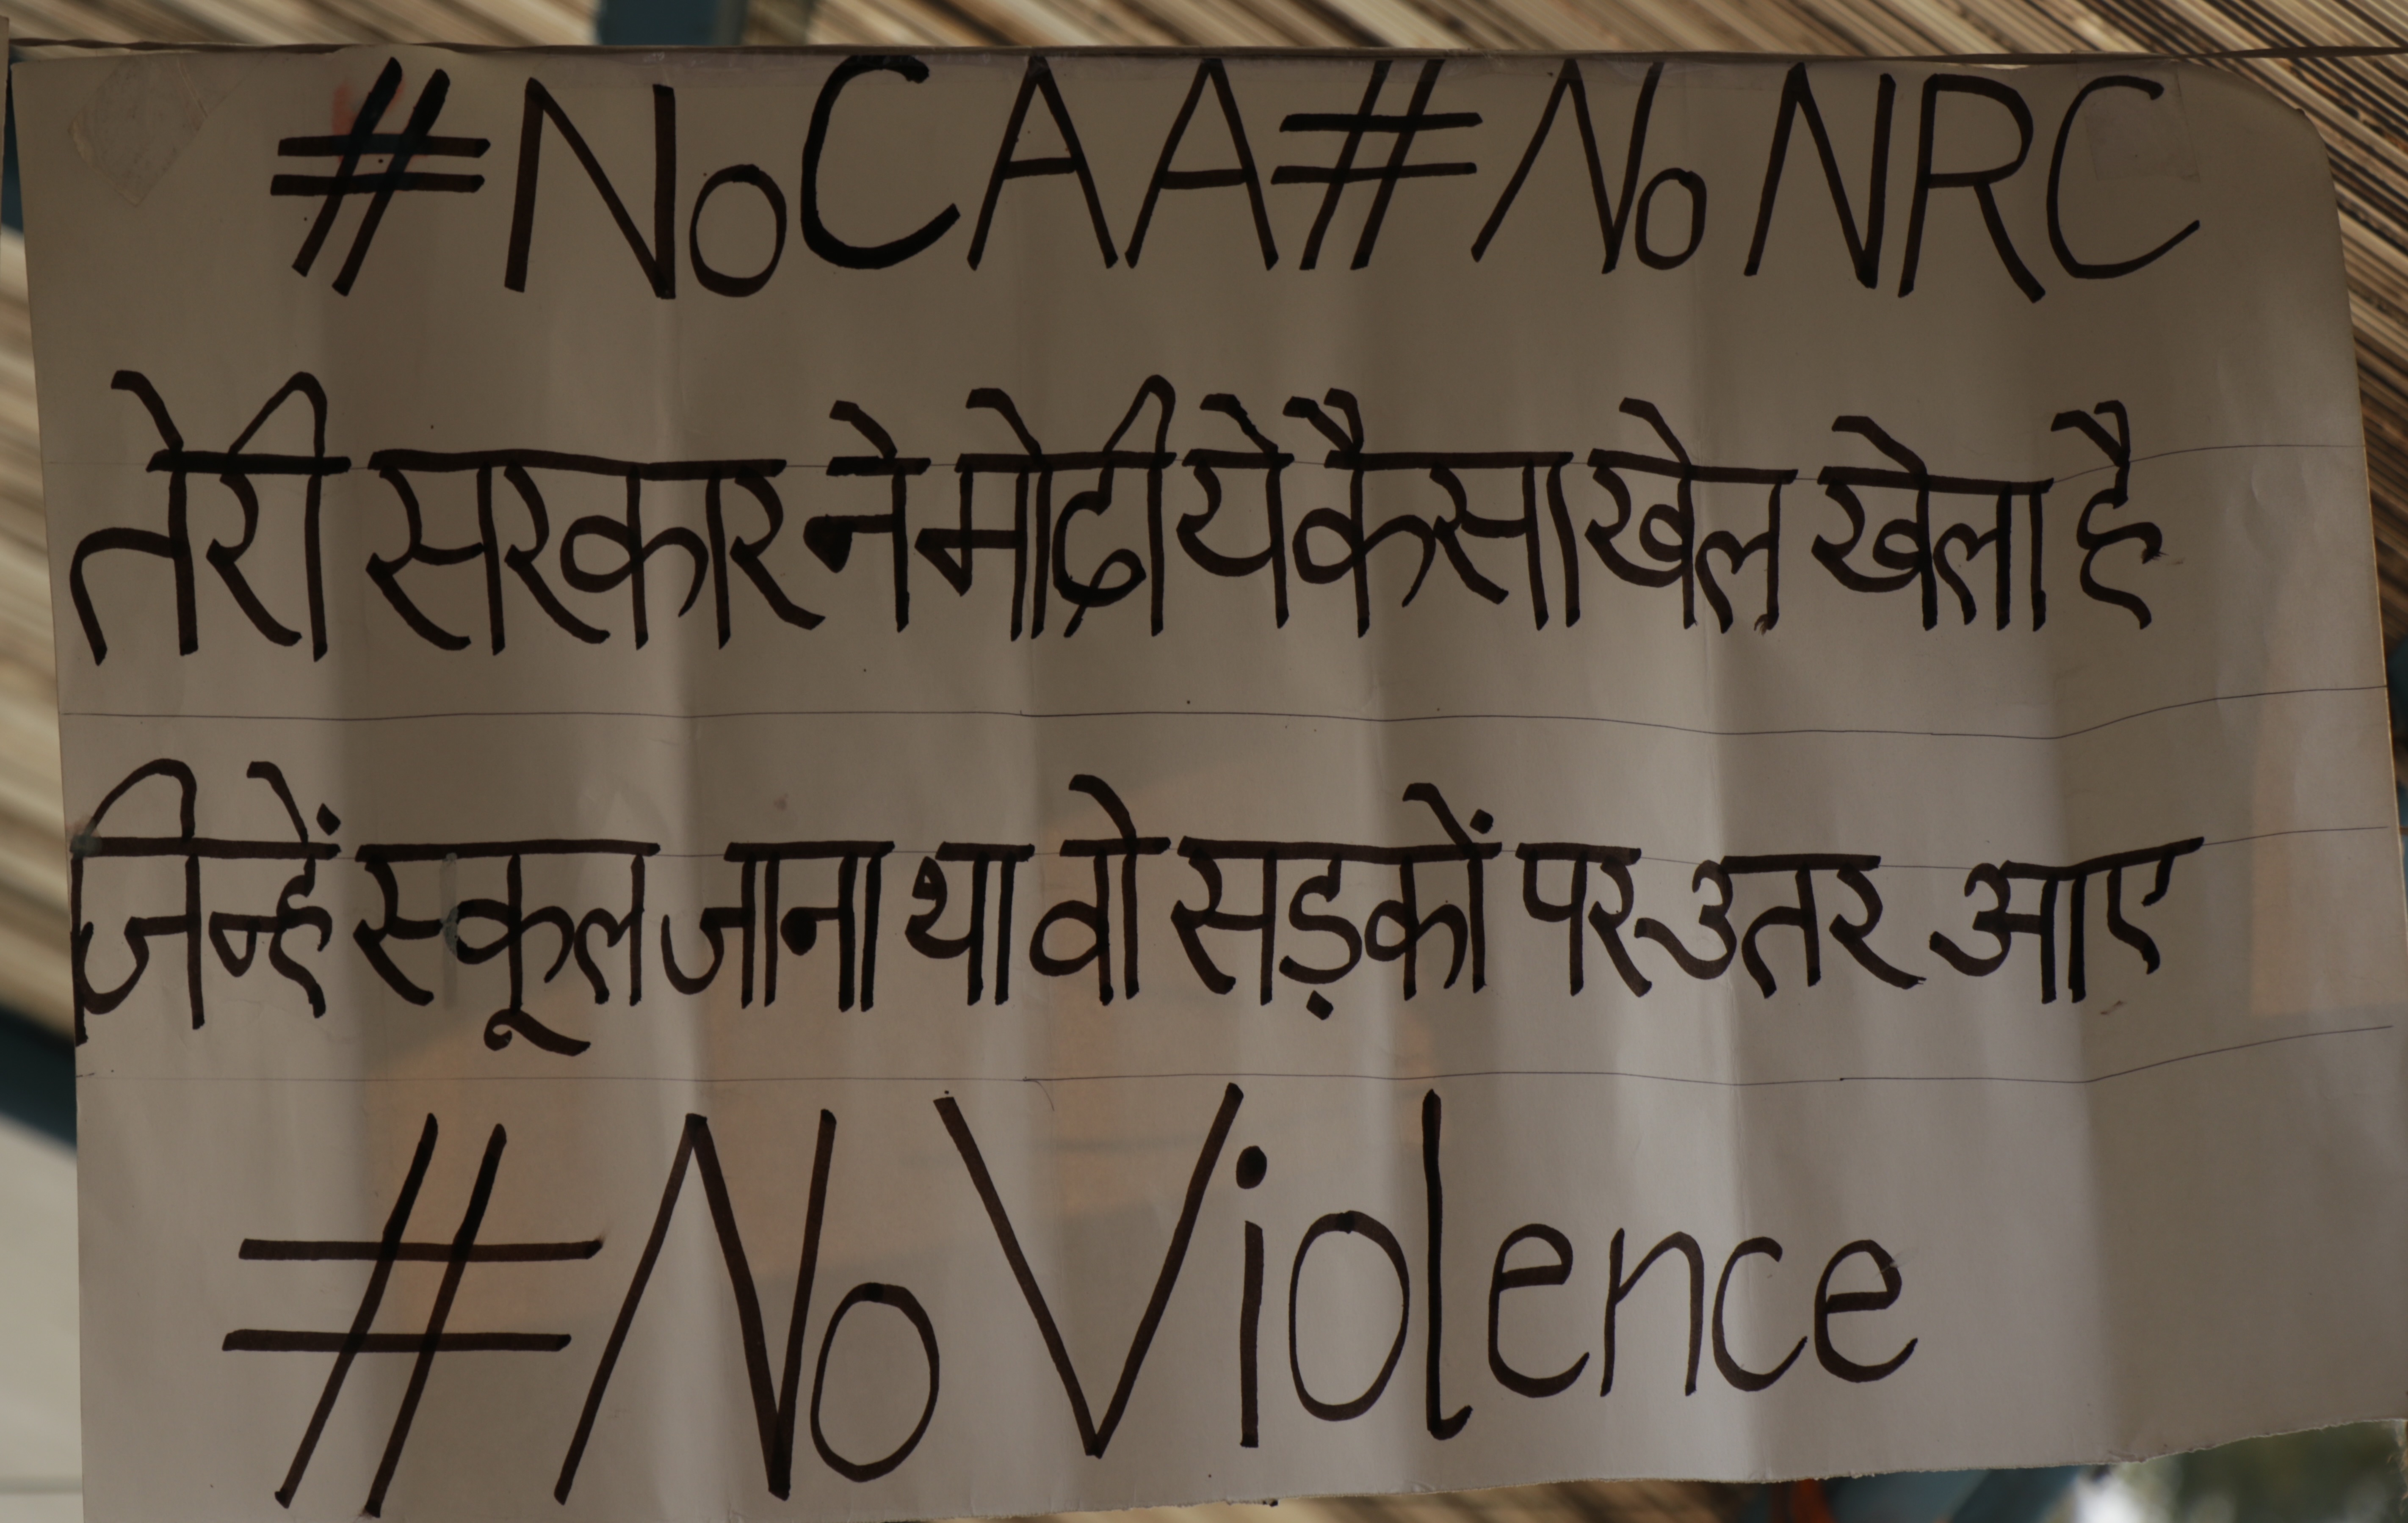 #NoCAA#NoNRC
तेरी सरकार ने मोदी ये कैसा खेल खेला है
जिन्हें स्कूल जाना था वो सड़कों पर उतर आए
#NoViolence